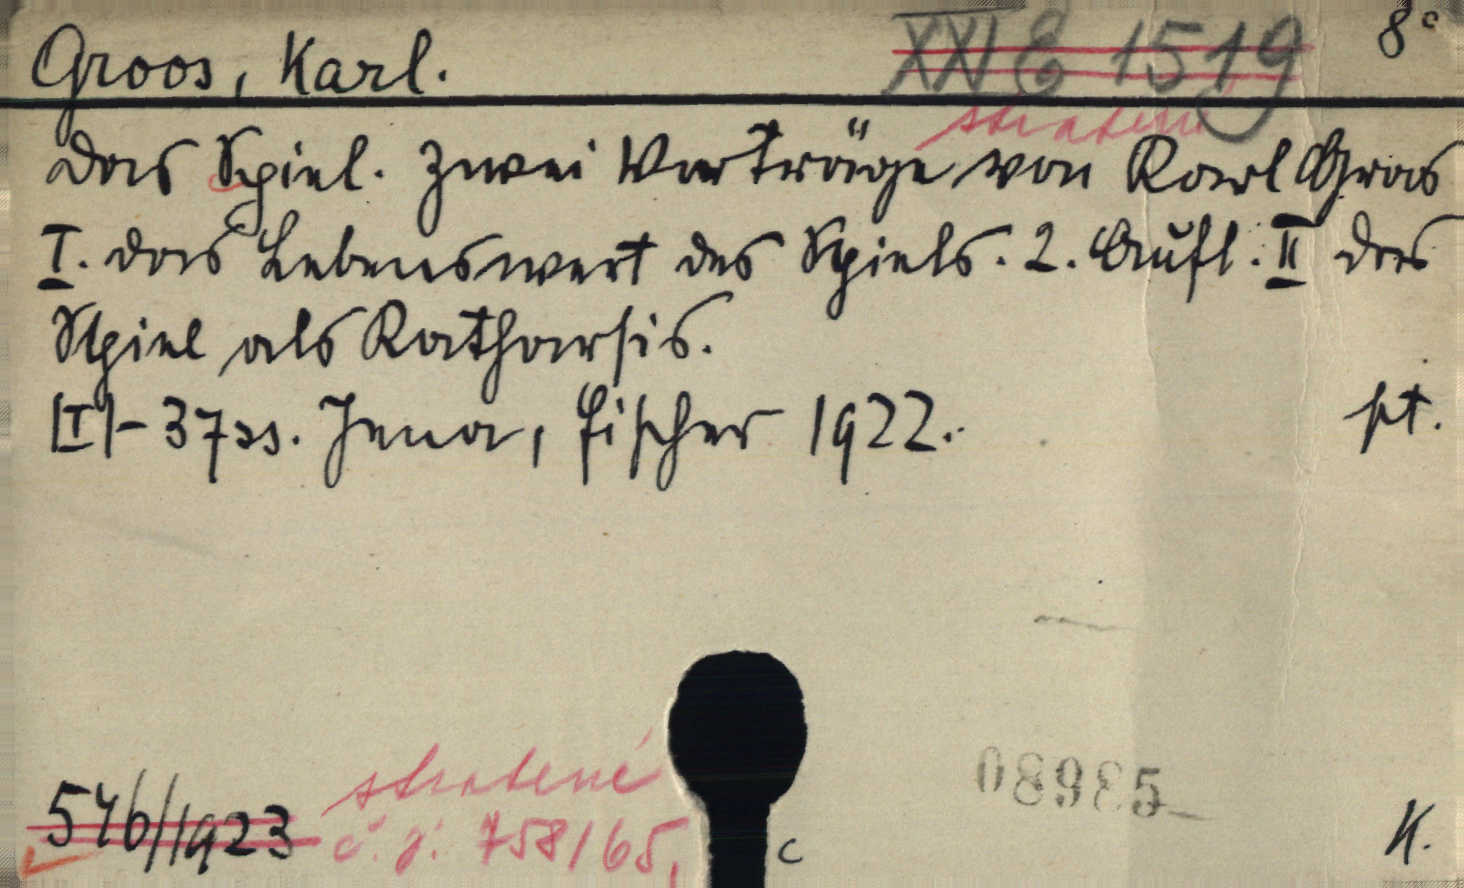 Groos, Karl.
XXI E 1519
8°
stratené
Das Spiel. Zwei Vorträge von Karl Groos
I. Das Lebenswert des Spiels. 2. Aufl. II Das
Spiel als Katharsis.
[I]-37 ss. Jena, Fischer 1922.
pt.
546/1923
stratené
č. j. 758/65,
c
08985
K.